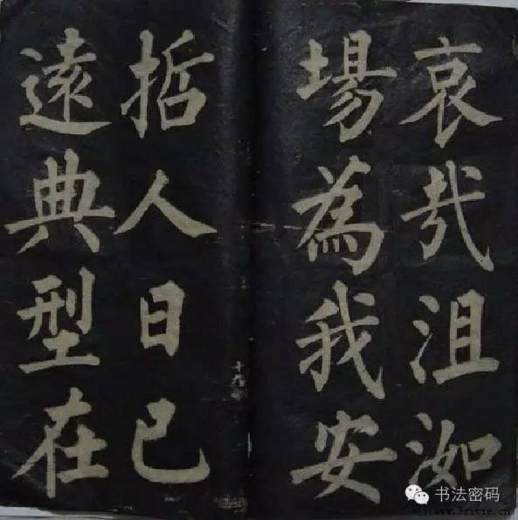 哀哉沮洳
場為我安
哲人日已
遠典型在
书法密码